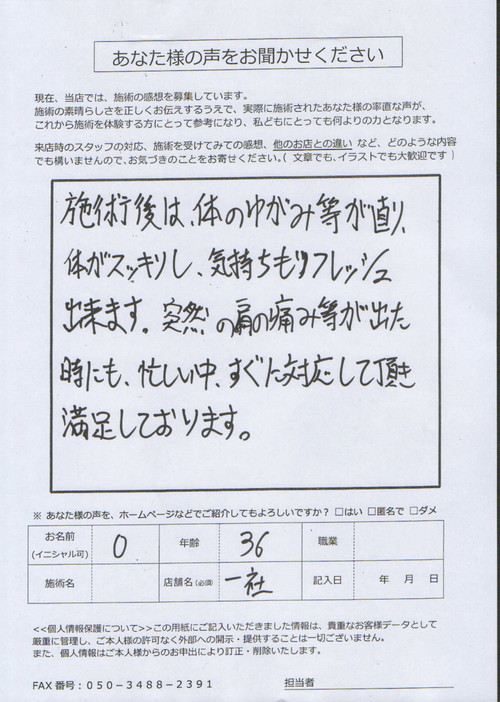 あなた様の声をお聞かせください
現在、当店では、施術の感想を募集しています。
施術の素晴らしさを正しくお伝えするうえで、実際に施術されたあなた様の率直な声が、
これから施術を体験する方にとって参考になり、私どもにとっても何よりの力となります。
来店時のスタッフの対応、施術を受けてみての感想、他のお店との違い など、どのような内容
でも構いませんので、お気づきのことをお寄せください。( 文章でも、イラストでも大歓迎です )
施術後は、体のゆがみ等が直り、
体がスッキリし、気持ちもリフレッシュ
出来ます。突然の肩の痛み等が出た
時にも、忙しい中、すぐに対応して頂き
満足しております。
※ あなた様の声を、ホームページなどでご紹介してもよろしいですか？ □はい □匿名で □ダメ
お名前 (イニシャル可) O 年齢 36 職業
施術名 店舗名 (必須) 一社 記入日 年 月 日
<<個人情報保護について>>この用紙にご記入いただきました情報は、貴重なお客様データとして
厳重に管理し、ご本人様の許可なく外部への開示・提供することは一切ございません。
また、個人情報はご本人様からのお申出により訂正・削除いたします。
FAX 番号：050－3488－2391 担当者